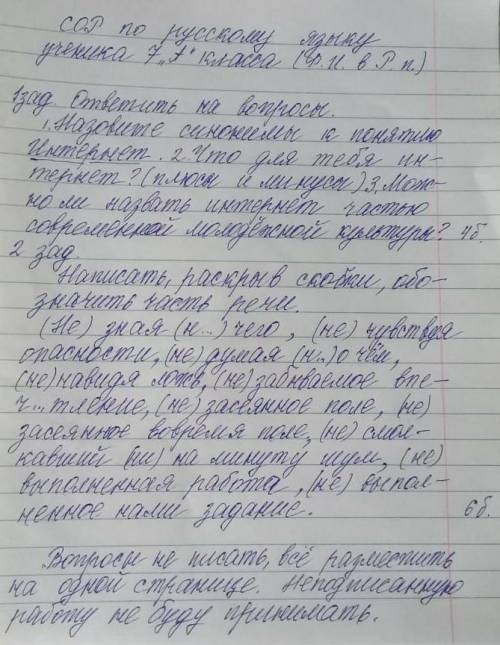 СОР по русскому языку
ученика 7 „А" класса (Ф. И. в Р. п.)
1зад. Ответить на вопросы.
1. Назовите синонимы к понятию
Интернет. 2. Что для тебя ин-
тернет? (плюсы и минусы) 3. Мож-
но ли назвать интернет частью
современной молодёжной культуры? 4б.
2 зад.
Написать, раскрыв скобки, обо-
значить часть речи.
(Не) зная (н...) чего, (не) чувствуя
опасности, (не) думая (н...) о чём,
(не) навидя ложь, (не) забываемое впе-
ч...тление, (не) засеянное поле, (не)
засеянное вовремя поле, (не) смол-
кавший (ни) на минуту шум, (не)
выполненная работа, (не) выпол-
ненное нами задание. 6б.
Вопросы не писать, всё разместить
на одной странице. Неподписанную
работу не буду принимать.